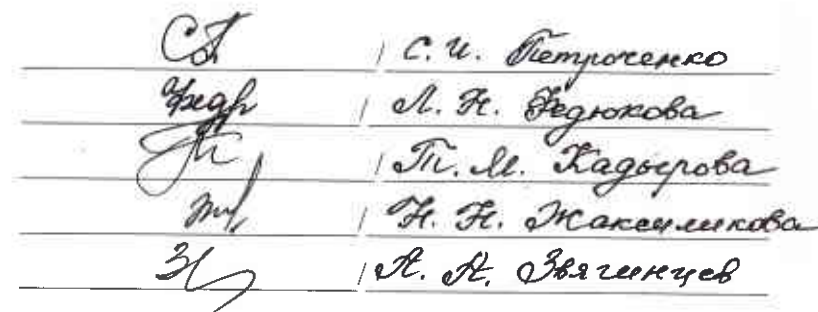 / С. И. Петроченко
/ Л. Н. Федюкова
/ Т. М. Кадырова
/ Н. Н. Жаксиликова
/ А. А. Звягинцев